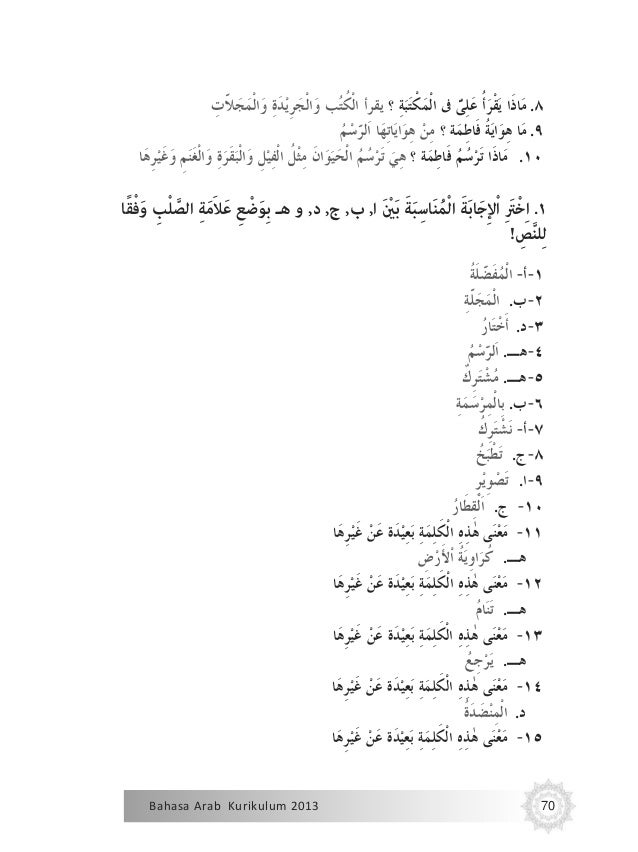 ٨. مَاذَا يَقْرَأُ عَلِىّ فى الْمَكْتَبَةِ ؟ يقرأ الْكُتُب وَالْجَرِيْدَةِ وَالْمَجَلّاَتِ
٩. مَا هِوَايَةُ فَاطِمَة ؟ مِنْ هِوَايَاتِهَا اَلرّسْمُ
١٠. مَاذَا تَرْسُمُ فَاطِمَة ؟ هِيَ تَرْسُمُ الْحَيَوَانَ مِثْلُ الْفِيْلِ وَالْبَقَرَةِ وَالْغَنَمِ وَغَيْرِهَا
١. اِخْتَرِ اْلإِجَابَةَ الْمُنَاسِبَةَ بَيْنَ ا, ب, ج, د, و هـ بِوَضْعِ عَلاَمَةِ الصَّلْبِ وَفْقًا
لِلنَّصِ!
١-أ- الْمُفَضّلَةُ
٢-ب. الْمَجَلّةِ
٣-د. أَخْتَارُ
٤-هــ. اَلرّسْمُ
٥-هــ. مُشْتَرِكٌ
٦-ب. بِالْمِرْسَمَةِ
٧-أ- نَشْتَرِكُ
٨-ج. تَطْبَخُ
٩-ا. تَصْوِيْرِ
١٠- ج. اَلْقِطَارُ
١١- مَعْنَى هٰذِهِ الْكَلِمَةِ بَعِيْدَة عَنْ غَيْرِهَا
هــ. كُرَاوِيَةُ اْلأَرْضِ
١٢- مَعْنَى هٰذِهِ الْكَلِمَةِ بَعِيْدَة عَنْ غَيْرِهَا
هــ. تَنَامُ
١٣- مَعْنَى هٰذِهِ الْكَلِمَةِ بَعِيْدَة عَنْ غَيْرِهَا
هــ. يَرْجِعُ
١٤- مَعْنَى هٰذِهِ الْكَلِمَةِ بَعِيْدَة عَنْ غَيْرِهَا
د. الْمِنْضَدَةُ
١٥- مَعْنَى هٰذِهِ الْكَلِمَةِ بَعِيْدَة عَنْ غَيْرِهَا
Bahasa Arab Kurikulum 2013 70